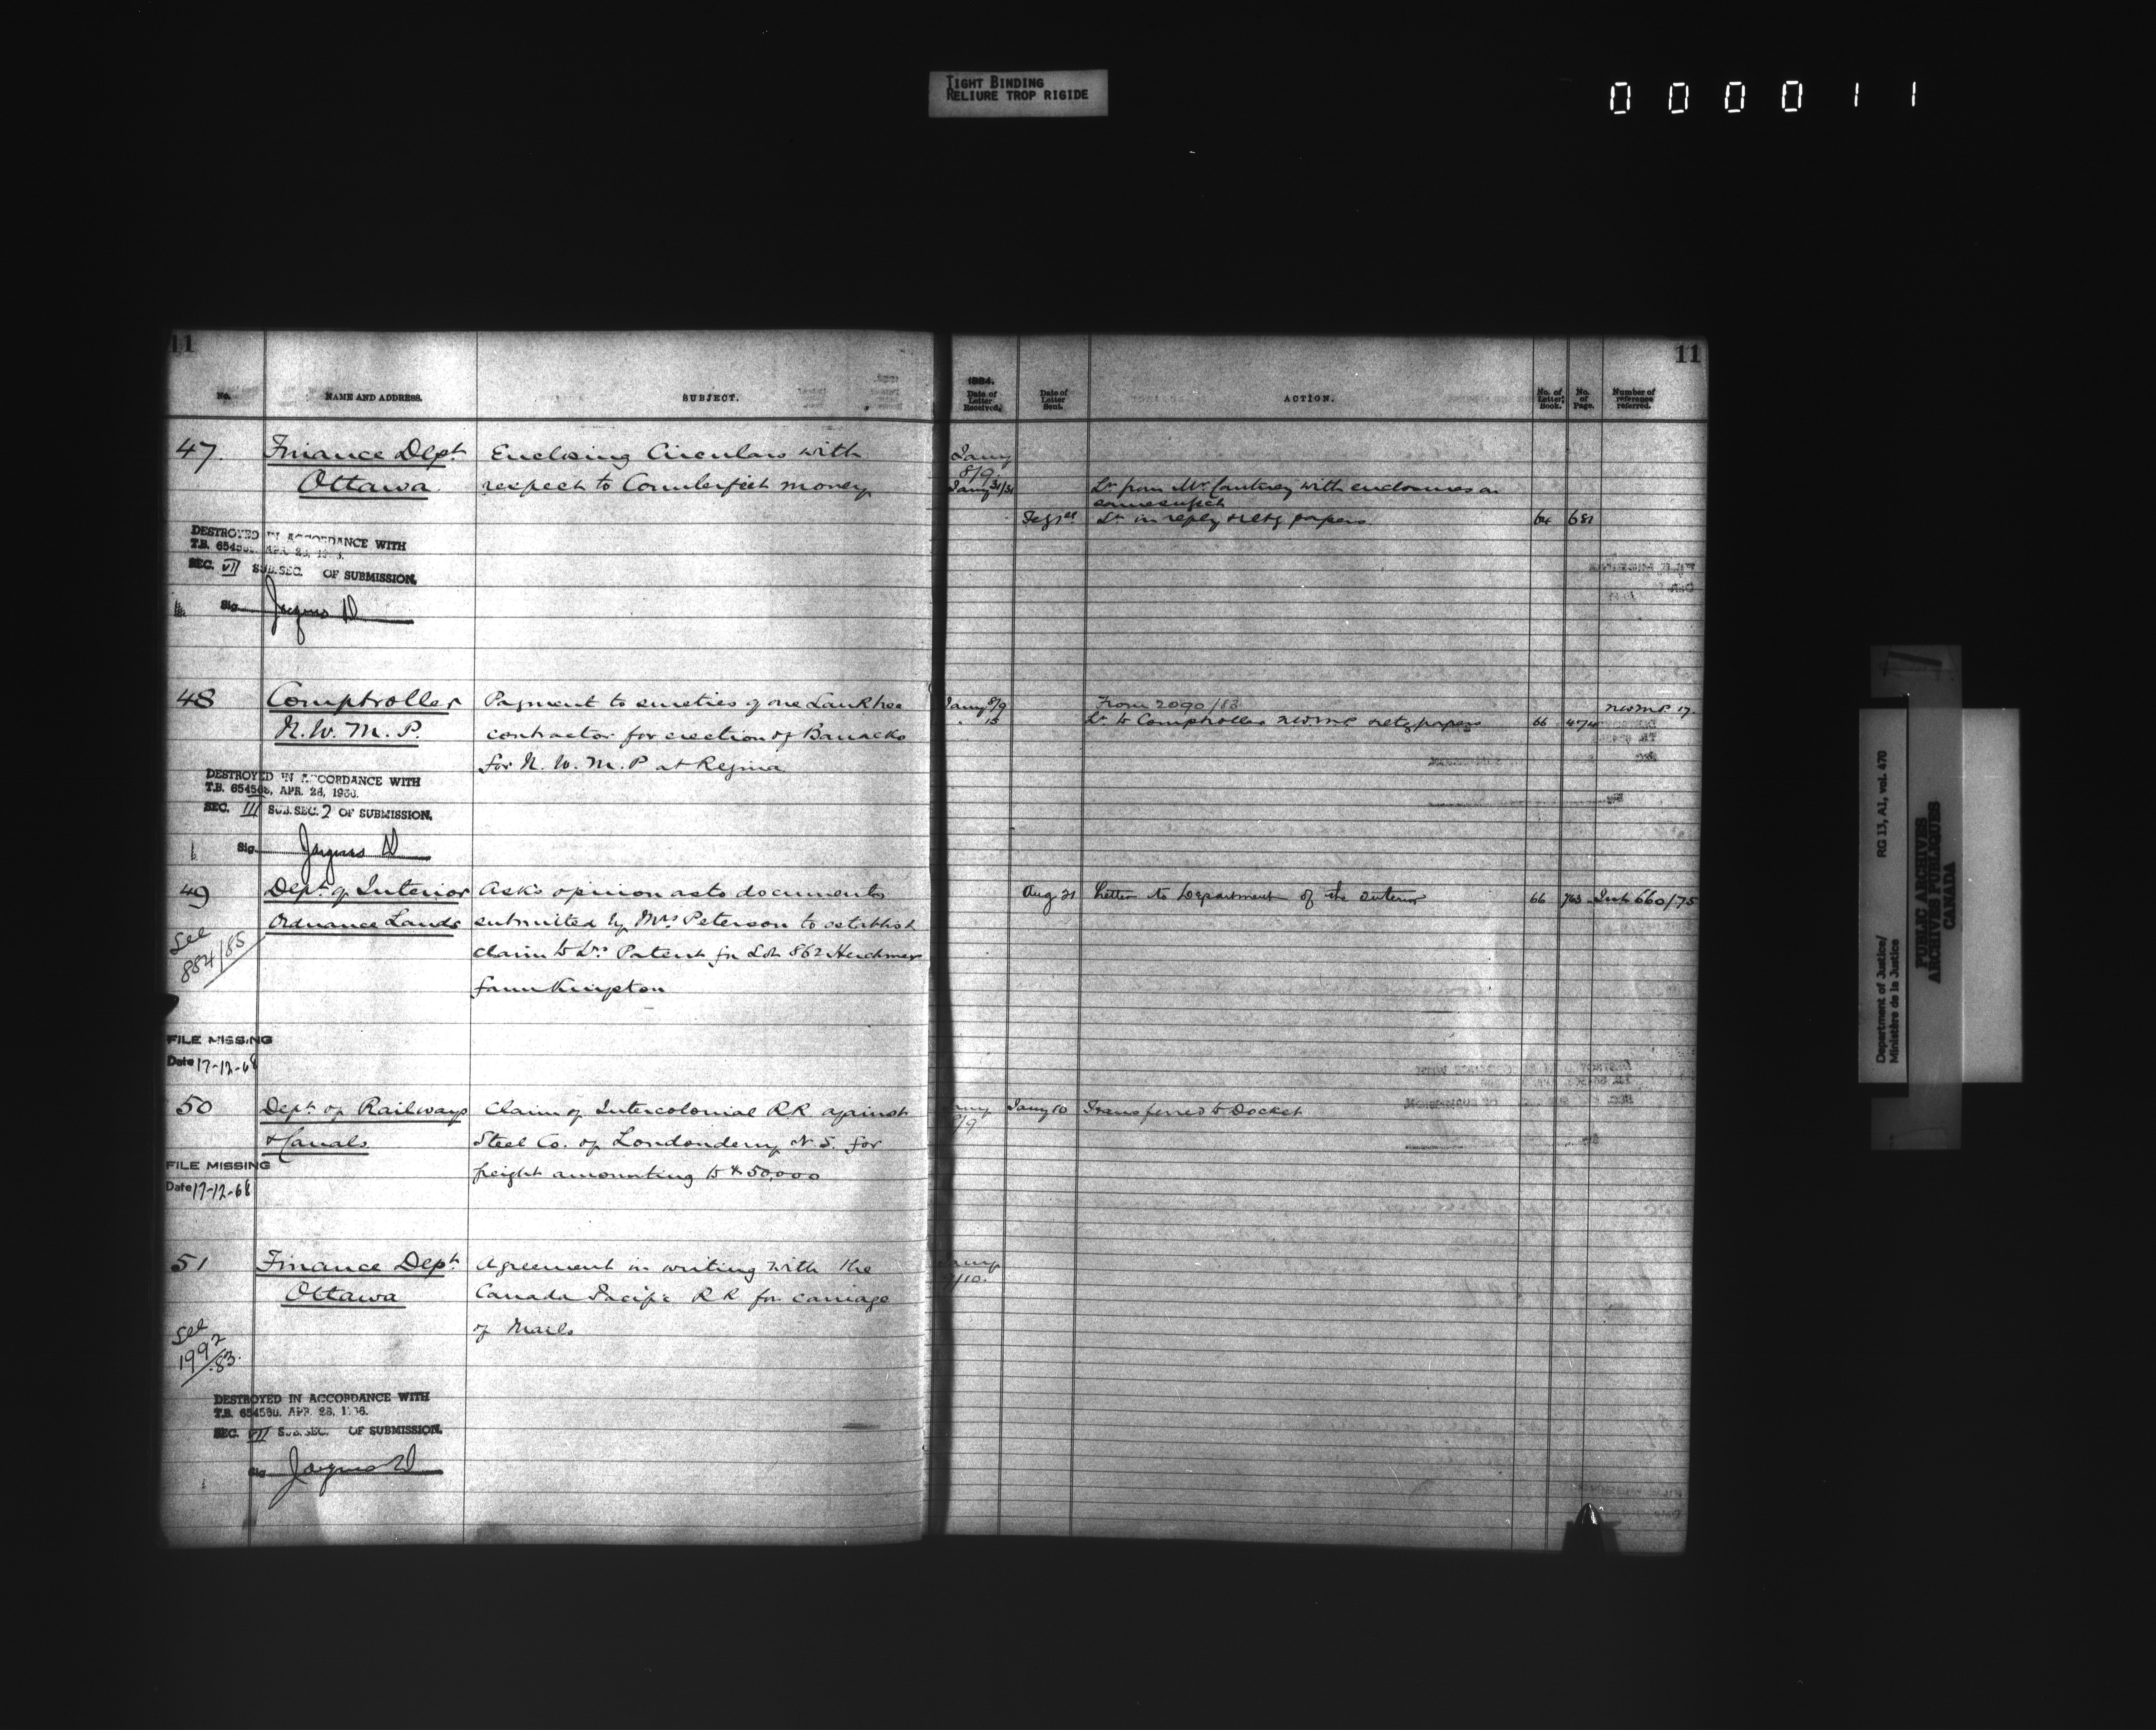 TIGHT BINDING
RELIURE TROP RIGIDE
000011
11
No.
NAME AND ADDRESS.
SUBJECT.
47.
Finance Dept
Ottawa
Enclosing Circulars with
respect to Counterfeit money
DESTROYED IN ACCORDANCE WITH
SEC. VII SUB.SEC. OF SUBMISSION.
Sig.
48
Comptroller
N.W.M.P.
Payment to sureties of one
contractor for erection of Barracks
for N.W.M.P at Regina
DESTROYED IN ACCORDANCE WITH
T.B. 654568, APR. 26, 1966.
SEC. III SUB.SEC. 2 OF SUBMISSION.
Sig.
49
Dept. of Interior
Ordnance Lands
See
884/85
Asks opinion as to documents
submitted by Mrs Peterson to establish
claim to Lrs Patent for Lot 862 Herchmer
farm Kingston
FILE MISSING
Date 17-12-68
50
Dept. of Railways
& Canals
Claim of Intercolonial RR against
Steel Co. of Londonderry N.S. for
freight amounting to $50,000
FILE MISSING
Date 17-12-68
51
Finance Dept
Ottawa
See
1992/83.
Agreement in writing with the
Canada Pacific RR for carriage
of Mails
DESTROYED IN ACCORDANCE WITH
SEC. VII SUB.SEC. OF SUBMISSION.
Sig.
11
1884.
Date of Letter Received.
Date of Letter Sent.
ACTION.
No. of Letter Book.
No. of Page.
Number of reference referred.
Jany
8/9
Jany 31/31
Lr from Mr. with enclosures on
same subject
Lr in reply & retg papers. 64 681
Jany 8/9 From 2090/83 NWMP 17.
" 15 Lr to Comptroller NWMP retg papers 66 474
Aug 21 Letter to Department of the Interior 66 763 Int 660/75
Jany 8/9 Jany 10 Transferred to Docket
Jany
9/10.
Department of Justice/ RG 13, A1, vol. 470
Ministère de la Justice
PUBLIC ARCHIVES
ARCHIVES PUBLIQUES
CANADA